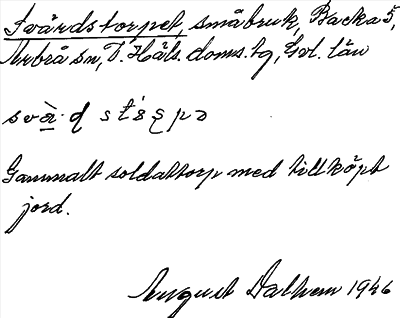 Svärdstorpet, småbruk, Backa 5,
Arbrå sn, V. Häls. doms. tg, Gvl. län
Gammalt soldattorp med tillköpt
jord.
August Dalhem 1946